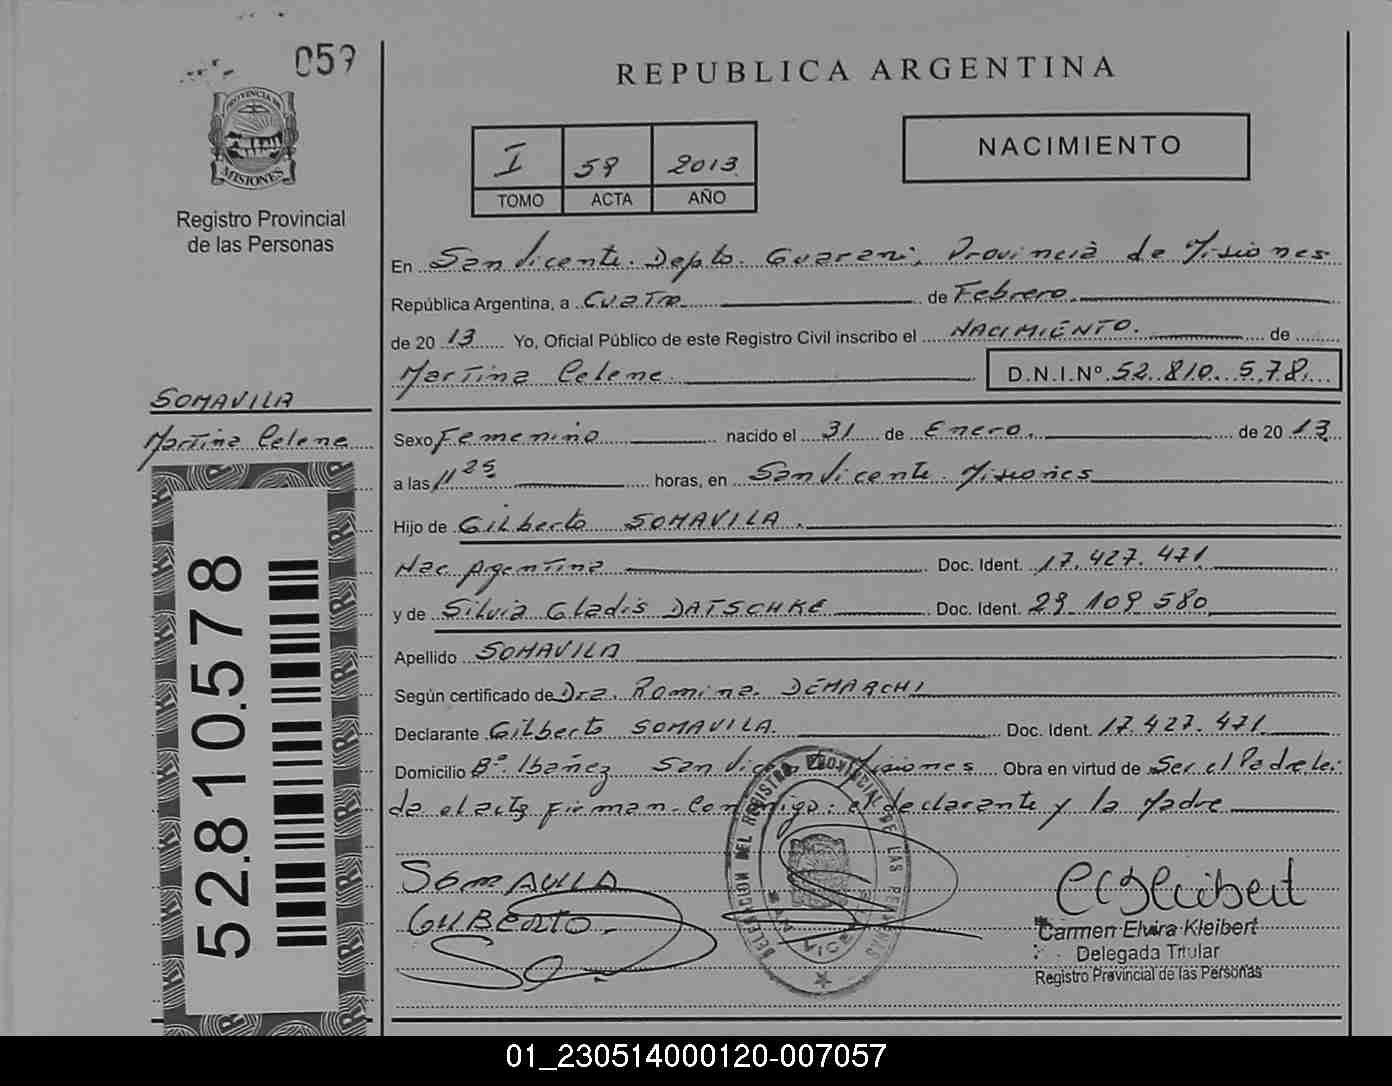 059
REPUBLICA ARGENTINA
PROVINCIA DE
MISIONES
Registro Provincial
de las Personas
I 59 2013
TOMO ACTA AÑO
NACIMIENTO
En San Vicente. Depto. Guarani, Provincia de Misiones
República Argentina, a Cuatro de Febrero
de 20 13 Yo, Oficial Público de este Registro Civil inscribo el NACIMIENTO. de
Martina Celene. D.N.I.Nº 52.810.578.
SOMAVILA
Martina Celene
Sexo Femenino nacido el 31 de Enero. de 20 13
a las 11 25 horas, en San Vicente. Misiones
Hijo de Gilberto SOMAVILA.
Nac. Argentina Doc. Ident. 17.427.471
y de Silvia Gladis DATSCHKE Doc. Ident. 29.109.580
Apellido SOMAVILA
Según certificado de Dra. Romina DEMARCHI
Declarante Gilberto SOMAVILA. Doc. Ident. 17.427.471
Domicilio Bº Ibañez San Vicente Misiones Obra en virtud de Ser el Padre. Lei-
da el acta firman conmigo: el declarante y la Madre
52.810.578
SOMAVILA
GILBERTO.
DELEGACION DEL REGISTRO PROVINCIAL DE LAS PERSONAS
Carmen Elvira Kleibert
Delegada Titular
Registro Provincial de las Personas
01_230514000120-007057